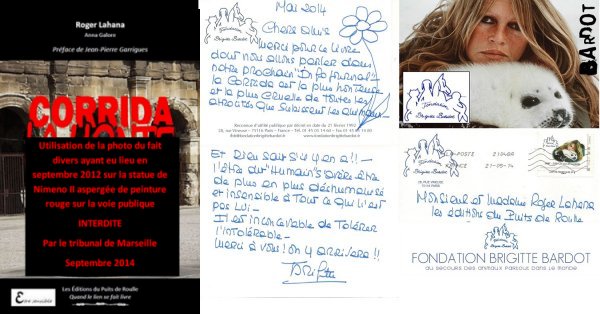 Roger Lahana
Anna Galore
Préface de Jean-Pierre Garrigues
CORRIDA
LA HONTE
Utilisation de la photo du fait
divers ayant eu lieu en
septembre 2012 sur la statue de
Nimeno II aspergée de peinture
rouge sur la voie publique
INTERDITE
Par le tribunal de Marseille
Septembre 2014
Les Éditions du Puits de Roulle
Quand le lien se fait livre
Mai 2014
Chers amis
merci pour le livre
dont nous allons parler dans
notre prochain "Info Journal"
la Corrida est la plus honteuse
et la plus cruelle de toutes les
atrocités que subissent les animaux
Fondation
Brigitte Bardot
Reconnue d'utilité publique par décret en date du 21 février 1992
28, rue Vineuse - 75116 Paris - France - Tél. 01 45 05 14 60
Et Dieu sait s'il y en a !! -
l'être dit "Humain" s'avère être
de plus en plus déshumanisé
et insensible à tout ce qui n'est
pas Lui -
Il est inconcevable de Tolérer
l'intolérable -
merci à vous ! On y arrivera !!
BARDOT
Fondation
Brigitte Bardot
Fondation
Brigitte Bardot
POSTE
21048A
27-05-14
Monsieur et madame Roger Lahana
les éditions du Puits de Roulle
Fondation
Brigitte Bardot
FONDATION BRIGITTE BARDOT
au secours des animaux partout dans le monde